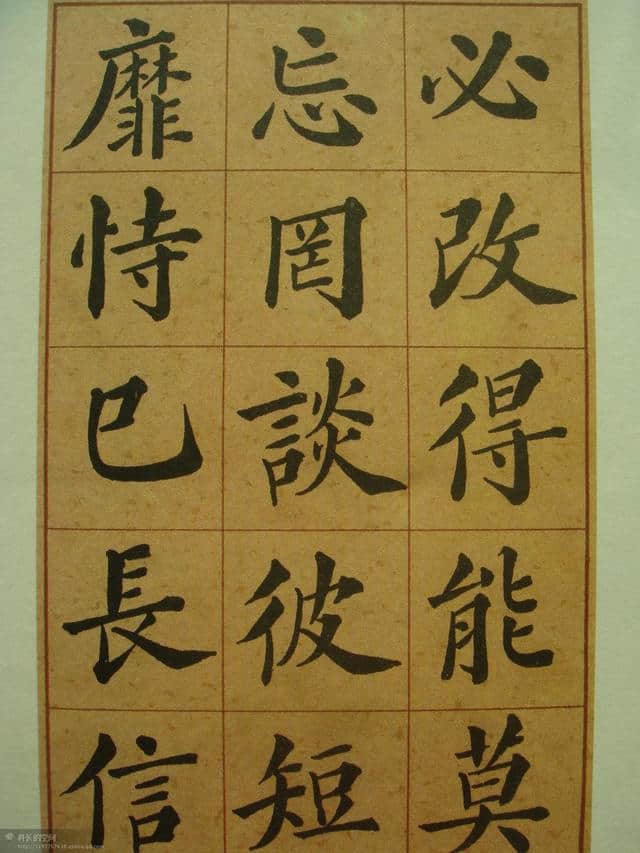 必改得能莫
忘罔談彼短
靡恃己長信